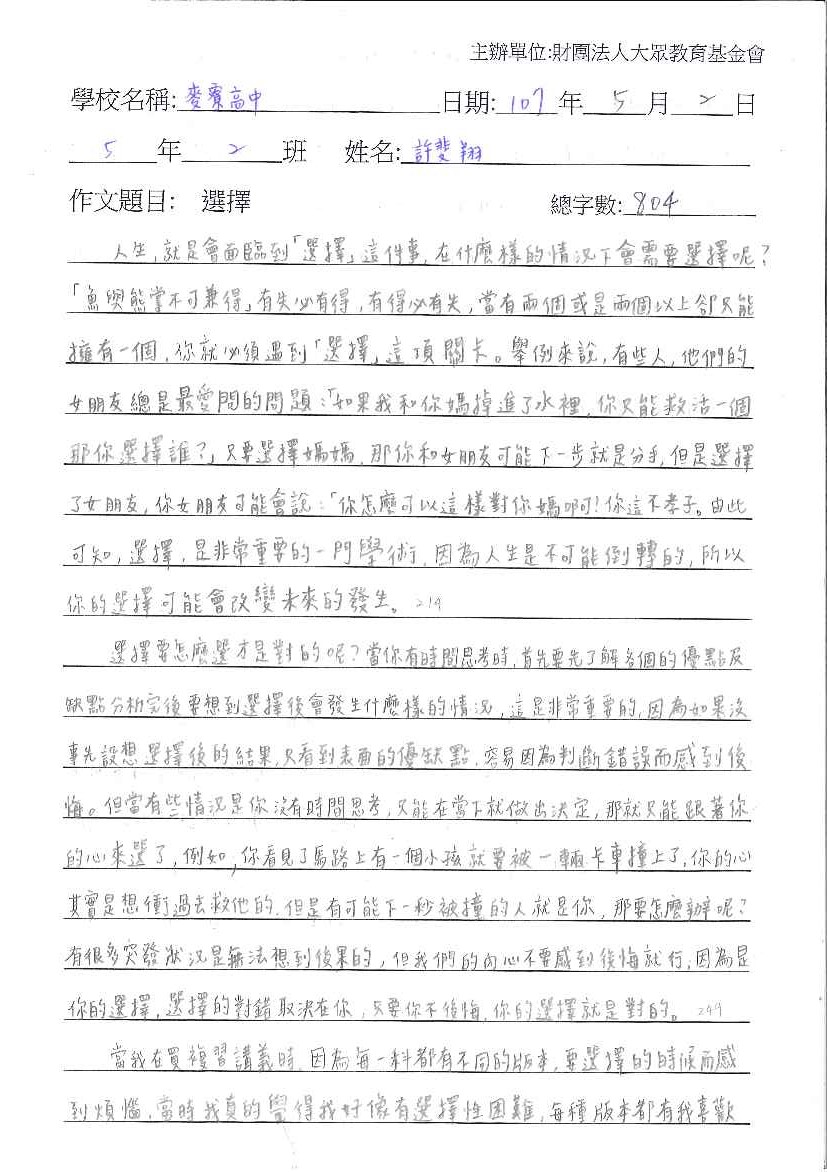 主辦單位:財團法人大眾教育基金會
學校名稱: 麥寮高中 日期: 107 年 5 月 2 日
5 年 2 班 姓名: 許斐翔
作文題目: 選擇 總字數: 804
人生,就是會面臨到「選擇」這件事,在什麼樣的情況下會需要選擇呢?
「魚與熊掌不可兼得」有失必有得,有得必有失,當有兩個或是兩個以上卻只能
擁有一個,你就必須遇到「選擇」這項關卡。舉例來說,有些人,他們的
女朋友總是最愛問的問題:「如果我和你媽掉進了水裡,你只能救活一個
那你選擇誰?」只要選擇媽媽,那你和女朋友可能下一步就是分手,但是選擇
了女朋友,你女朋友可能會說:「你怎麼可以這樣對你媽啊!你這不孝子。由此
可知,選擇,是非常重要的一門學術,因為人生是不可能倒轉的,所以
你的選擇可能會改變未來的發生。 219
選擇要怎麼選才是對的呢?當你有時間思考時,首先要先了解各個的優點及
缺點分析完後要想到選擇後會發生什麼樣的情況,這是非常重要的,因為如果沒
事先設想選擇後的結果,只看到表面的優缺點,容易因為判斷錯誤而感到後
悔。但當有些情況是你沒有時間思考,只能在當下就做出決定,那就只能跟著你
的心來選了,例如,你看見了馬路上有一個小孩就要被一輛卡車撞上了,你的心
其實是想衝過去救他的,但是有可能下一秒被撞的人就是你,那要怎麼辦呢?
有很多突發狀況是無法想到後果的,但我們的內心不要感到後悔就行,因為是
你的選擇,選擇的對錯取決在你,只要你不後悔,你的選擇就是對的。 249
當我在買複習講義時,因為每一科都有不同的版本,要選擇的時候而感
到煩惱,當時我真的覺得我好像有選擇性困難,每種版本都有我喜歡